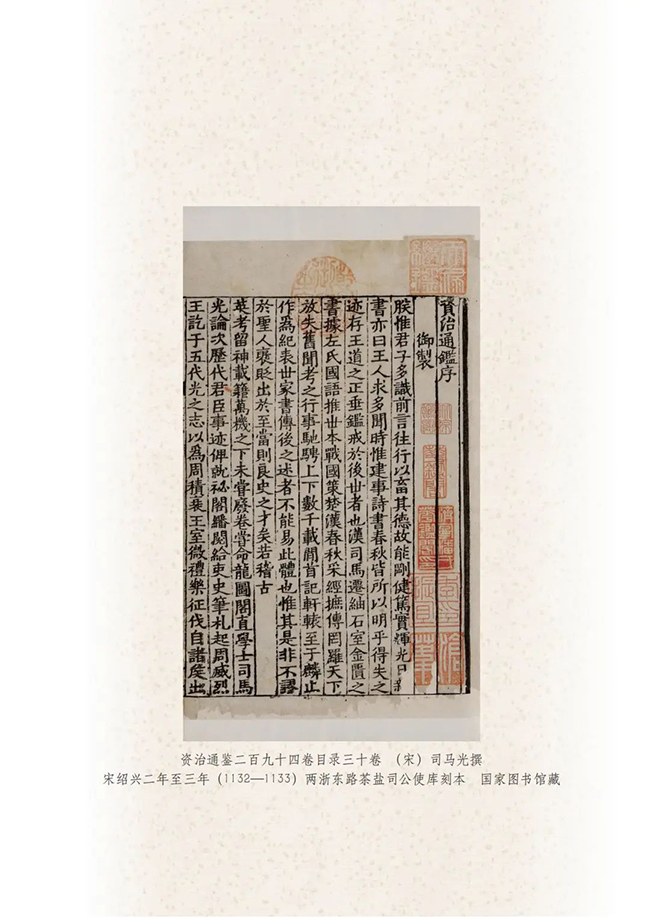 資治通鑑序
御製
朕惟君子多識前言往行以畜其德故能剛健篤實輝光日新
書亦曰王人求多聞時惟建事詩書春秋皆所以明乎得失之
迹存王道之正垂鑑戒於後世者也漢司馬遷紬石室金匱之
書據左氏國語推世本戰國策楚漢春秋采經摭傳罔羅天下
放失舊聞考之行事馳騁上下數千載間首記軒轅至于麟止
作爲紀表世家書傳後之述者不能易此體也惟其是非不謬
於聖人襃貶出於至當則良史之才矣若稽古
英考留神載籍萬機之下未嘗廢卷嘗命龍圖閣直學士司馬
光論次歷代君臣事迹俾就祕閣繙閱給吏史筆札起周威烈
王訖于五代光之志以爲周積衰王室微禮樂征伐自諸侯出
资治通鉴二百九十四卷目录三十卷 (宋)司马光撰
宋绍兴二年至三年(1132—1133)两浙东路茶盐司公使库刻本 国家图书馆藏